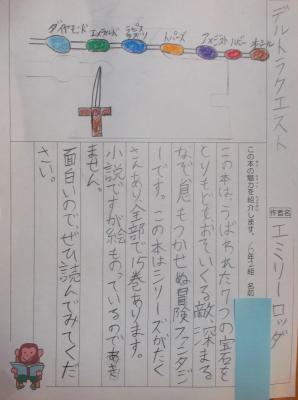 デルトラクエスト
作者名 エミリーロッダ
この本の魅力を紹介します。
ダイヤモンド
エメラルド
ラピスラズリ
トパーズ
アメジスト
ルビー
オパール
この本は、うばわれた7つの宝石を
とりもどせ、おそいくる敵、深まる
なぞ、息もつかせぬ冒険ファンタジ
ーです。この本はシリーズがたく
さんあり、全部で15巻あります。
小説ですが絵ものっているのであき
ません。
面白いので、ぜひ読んでみてくだ
さい。